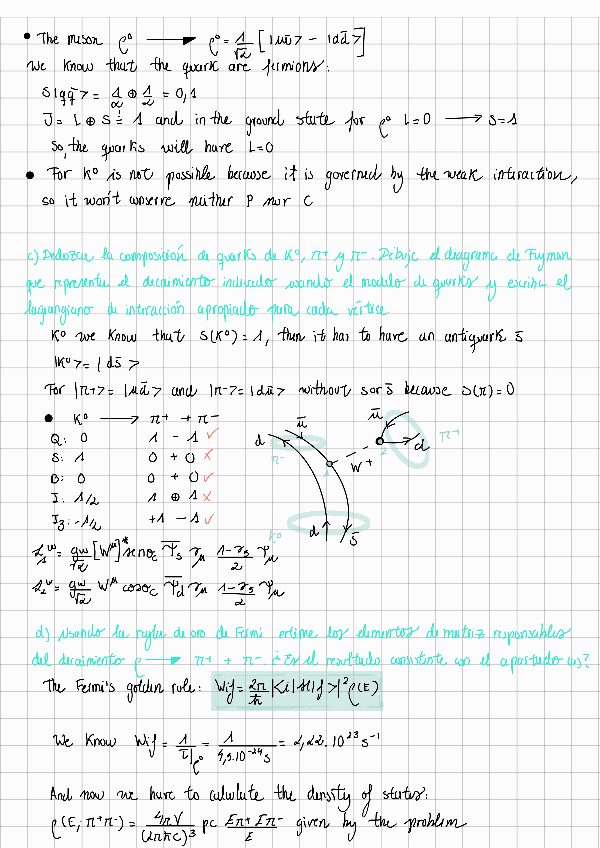 • The meson ρ⁰ ⟶ ρ⁰ = 1/√2 [ |uū> − |dd̄> ]
We know that the quark are fermions:
S|qq̄> = 1/2 ⊕ 1/2 = 0,1
J = L ⊕ S = 1 and in the ground state for ρ⁰ L=0 ⟶ S=1
So, the quarks will have L=0
• For K⁰ is not possible because it is governed by the weak interaction,
so it won't conserve neither P nor C
c) Deduzca la composición de quarks de K⁰, π+ y π−. Dibuje el diagrama de Feyman
que representa el decaimiento indicado usando el modelo de quarks y escriba el
lagrangiano de interacción apropiado para cada vértice
K⁰ we know that S(K⁰) = 1, then it has to have an antiquark s̄
|K⁰> = |ds̄>
For |π+> = |ud̄> and |π−> = |dū> without s or s̄ because S(π) = 0
• K⁰ ⟶ π+ + π−
Q: 0 1 − 1 ✓
S: 1 0 + 0 ✗
B: 0 0 + 0 ✓
I: 1/2 1 ⊕ 1 ✗
I₃: −1/2 +1 − 1 ✓
d ū π− 1 W+ 2 ū d π+
K⁰ d s̄
L₁ʷ = gw/√2 [Wᵘ]* senθc Ψ̄s γμ (1−γ5)/2 Ψμ
L₂ʷ = gw/√2 Wᵘ cosθc Ψ̄d γμ (1−γ5)/2 Ψμ
d) Usando la regla de oro de Fermi estime los elementos de matriz responsables
del decaimiento ρ ⟶ π+ + π−. ¿Es el resultado consistente con el apartado (a)?
The Fermi's golden rule: Wif = 2π/ħ |<i|H|f>|² ρ(E)
We know Wif = 1/τ|ρ⁰ = 1/(4,5·10⁻²⁴ s) = 2,22·10²³ s⁻¹
And now we have to calculate the density of states:
ρ(E; π+π−) = 4πV/(2πħc)³ pc Eπ+ Eπ−/E given by the problem